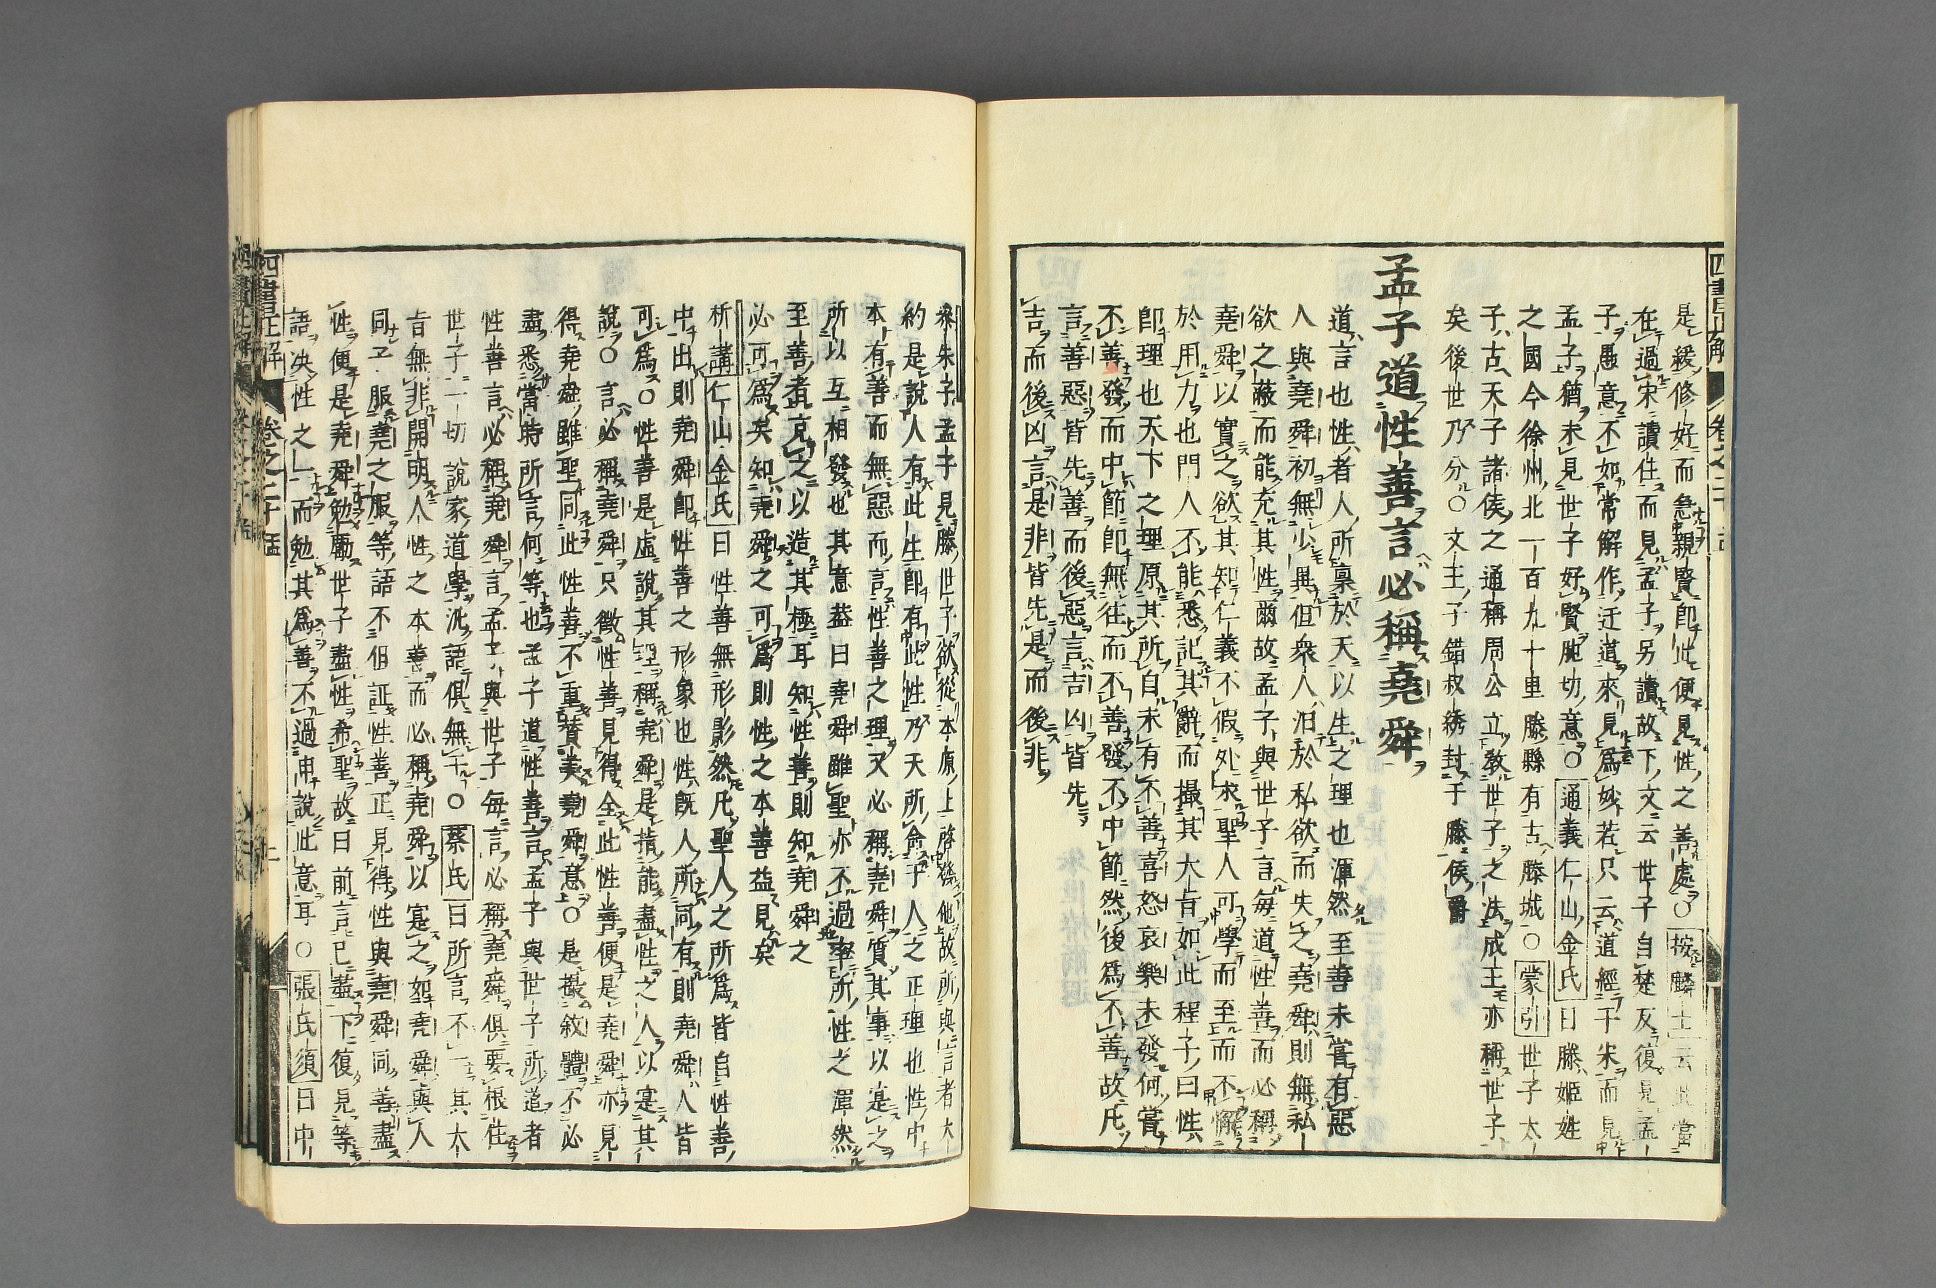 是緩修好而急親賢即此便見性之善處○按麟士云此當
在過宋讀住而見孟子另讀故下文云世子自楚反復見孟
子愚意不如常解作迂道來見爲妙若只云道經于宋而見
孟子猶未見世子好賢肫切意○通義仁山金氏曰滕姬姓
之國今徐州北一百九十里滕縣有古滕城○蒙引世子太
子古天子諸侯之通稱周公立教世子之法成王亦稱世子
矣後世乃分○文王子錯叔綉封于滕侯爵
孟子道性善言必稱堯舜
道言也性者人所稟於天以生之理也渾然至善未嘗有惡
人與堯舜初無少異但衆人汩於私欲而失之堯舜則無私
欲之蔽而能充其性爾故孟子與世子言每道性善而必稱
堯舜以實之欲其知仁義不假外求聖人可學而至而不懈
於用力也門人不能悉記其辭而撮其大旨如此程子曰性
即理也天下之理原其所自未有不善喜怒哀樂未發何嘗
不善發而中節即無往而不善發不中節然後爲不善故凡
言善惡皆先善而後惡言吉凶皆先
吉而後凶言是非皆先是而後非
四書正解 卷之二十 孟
朱子孟子見滕世子欲從本原上啓後他故所與言者大
約是說人有此生即有此性乃天所命于人之正理也性中
本有善而無惡而言性善之理又必稱堯舜質其事以寔之
所以互相發也其意蓋曰堯舜雖聖亦不過率所性之渾然
至善者克之以造其極耳知性善則知堯舜之
必可爲矣知堯舜之可爲則性之本善益見矣
析講仁山金氏曰性善無形影然凡聖人之所爲皆自性善
中出則堯舜即性善之形象也性既人所同有則堯舜人皆
可爲○性善是虛說其理稱堯舜是指能盡性之人以寔其
說○言必稱堯舜只徵性善見得全此性善便是堯舜亦見
得堯舜雖聖同此性善不重賛美堯舜意○是最敘體不必
盡悉當時所言何等也孟子道性善言孟子與世子所道者
性善言必稱堯舜言孟子與世子每言必稱堯舜俱要根住
世子一切說家道學泛語俱無干○蔡氏曰所言不一其大
旨無非開明人性之本善而必稱堯舜以寔之如堯舜與人
同又服堯之服等語不但証性善正見得性與堯舜同善盡
性便是堯舜勉勵世子盡性希聖故曰前言已盡下復見等
語决性之而勉其爲善不過申說此意耳○張氏須曰中
四書正解 卷之二十 孟 二